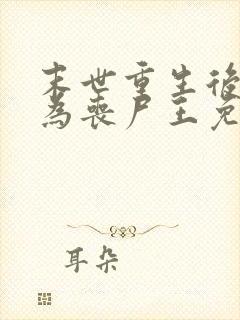 末世重生後
為喪尸王免
耳朵